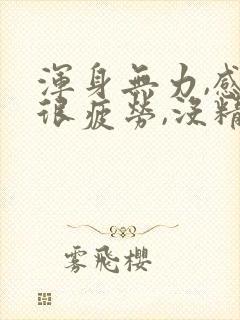 渾身無力,感
很疲勞,沒精
雾飛櫻